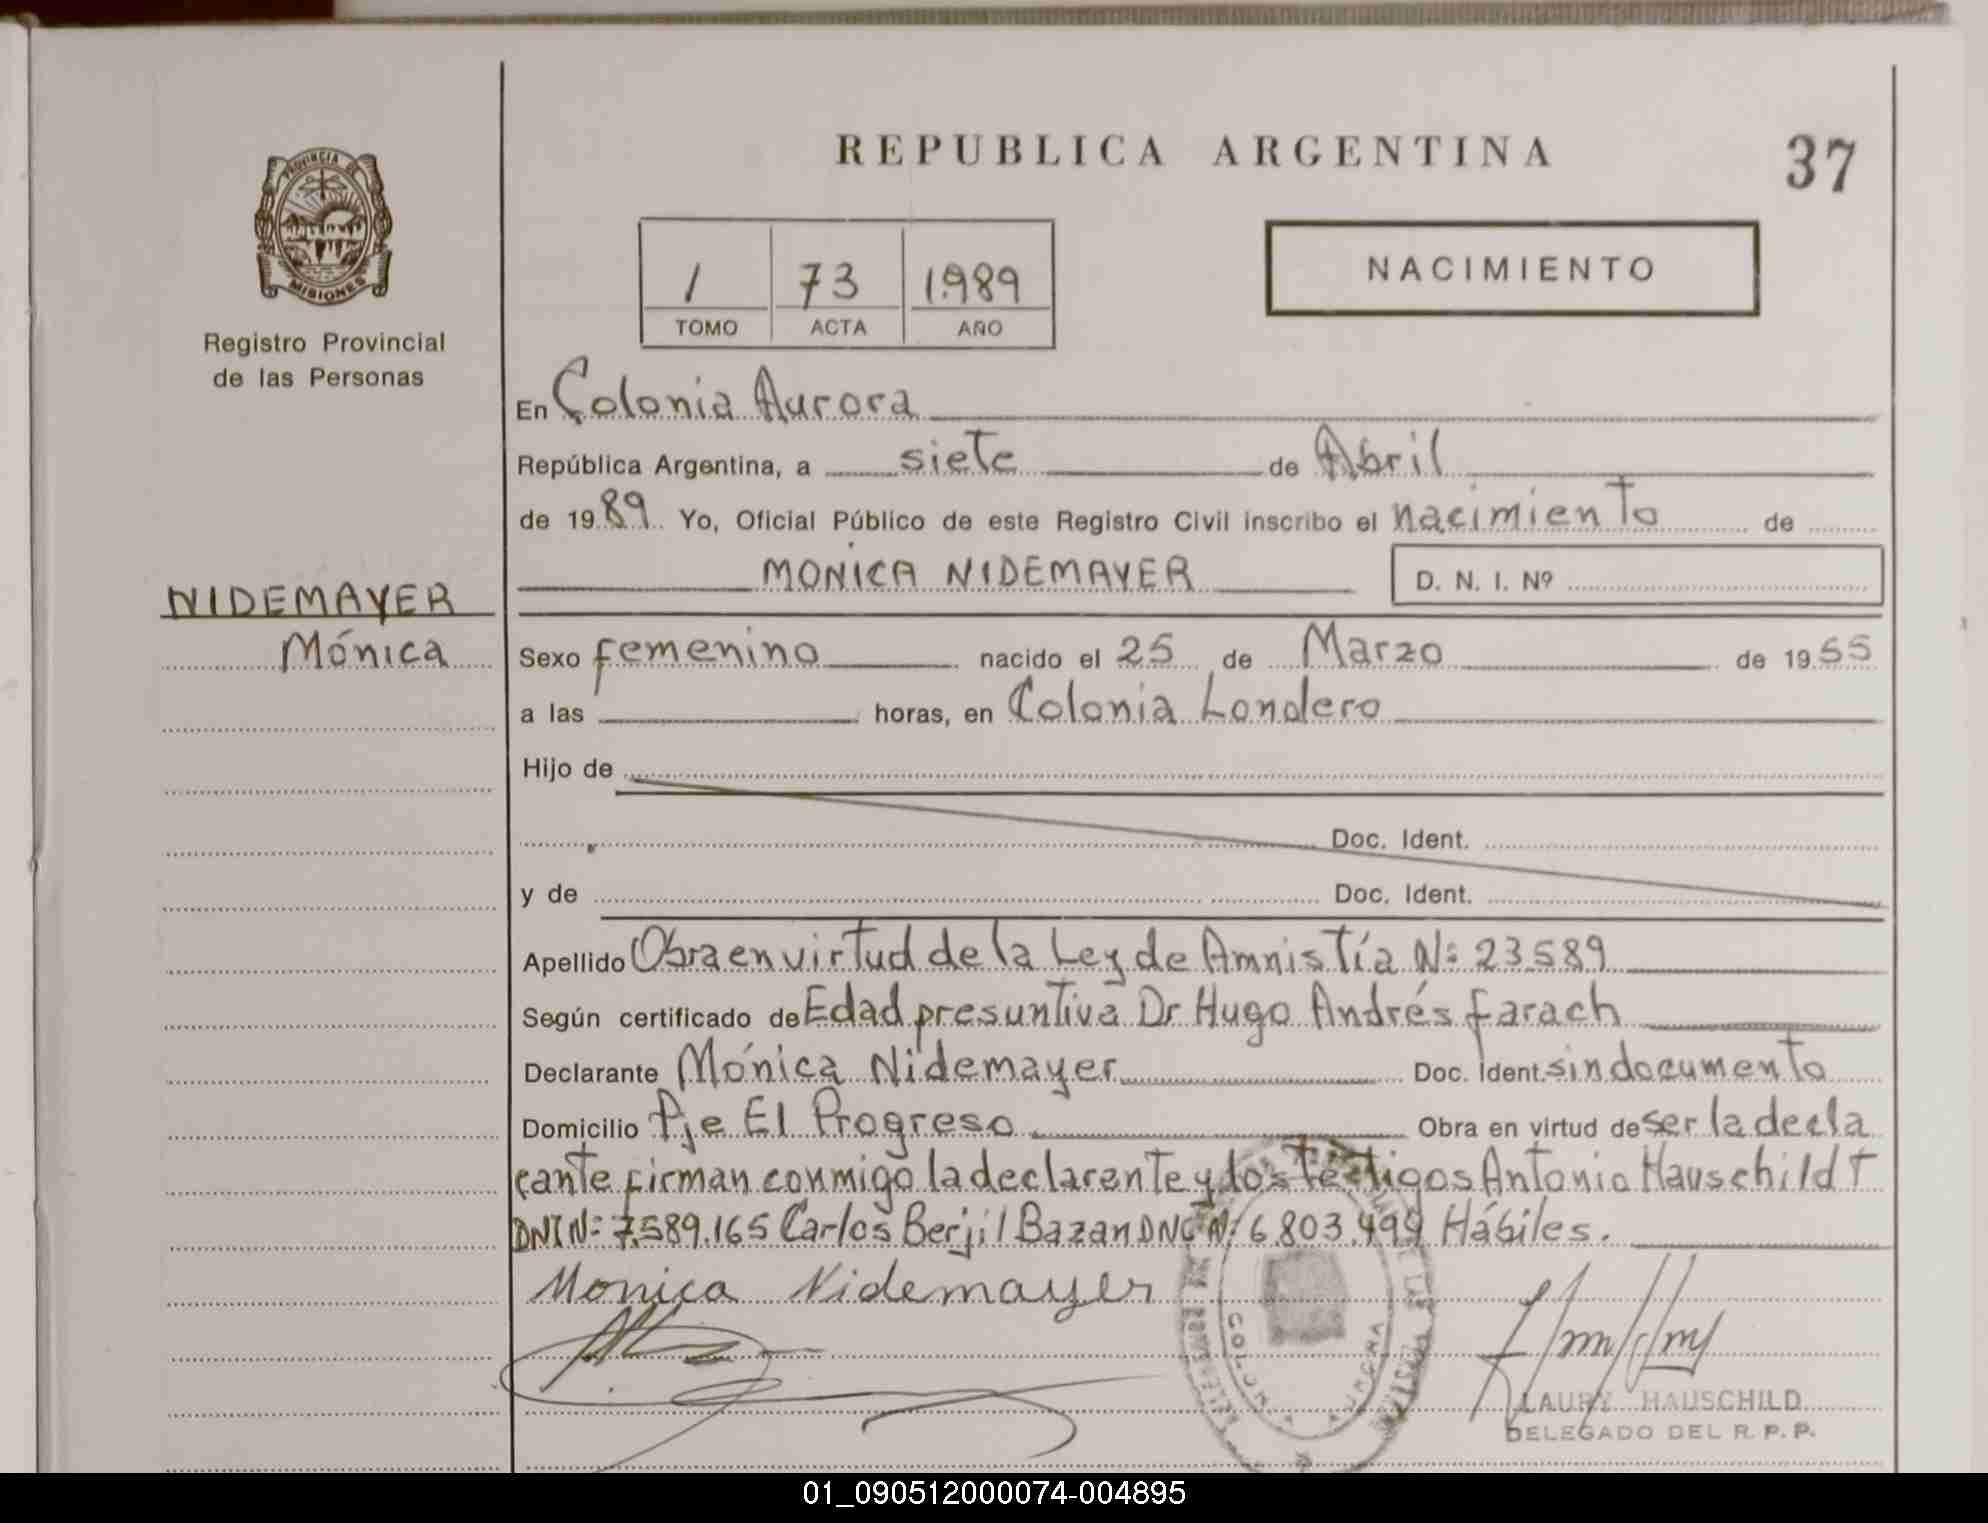 REPUBLICA ARGENTINA
37
PROVINCIA DE
MISIONES
Registro Provincial
de las Personas
1 73 1989
TOMO ACTA AÑO
NACIMIENTO
En Colonia Aurora
República Argentina, a siete de Abril
de 1989 Yo, Oficial Público de este Registro Civil inscribo el nacimiento de
MONICA NIDEMAYER
D. N. I. Nº
NIDEMAYER
Mónica
Sexo femenino nacido el 25 de Marzo de 1955
a las horas, en Colonia Londero
Hijo de
Doc. Ident.
y de Doc. Ident.
Apellido Obra en virtud de la Ley de Amnistía Nº 23.589
Según certificado de Edad presuntiva Dr Hugo Andrés Farach
Declarante Mónica Nidemayer Doc. Ident. sin documento
Domicilio Pje El Progreso Obra en virtud de ser la decla
rante firman conmigo la declarante y dos testigos Antonio Hauschildt
DNI Nº 7.589.165 Carlos Berjil Bazan DNI Nº 6.803.499 Hábiles.
Monica Nidemayer
COLONIA AURORA
LAURY HAUSCHILD
DELEGADO DEL R. P. P.
01_090512000074-004895